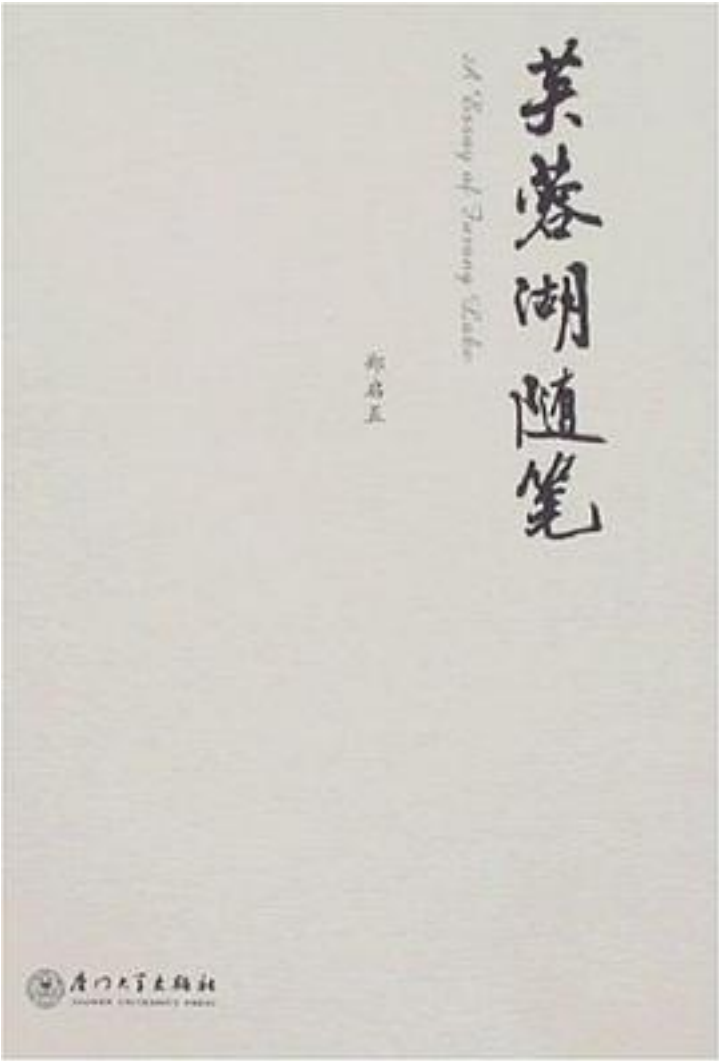 芙蓉湖随笔
A Essay of Furong Lake
郑启五
厦门大学出版社
XIAMEN UNIVERSITY PRESS